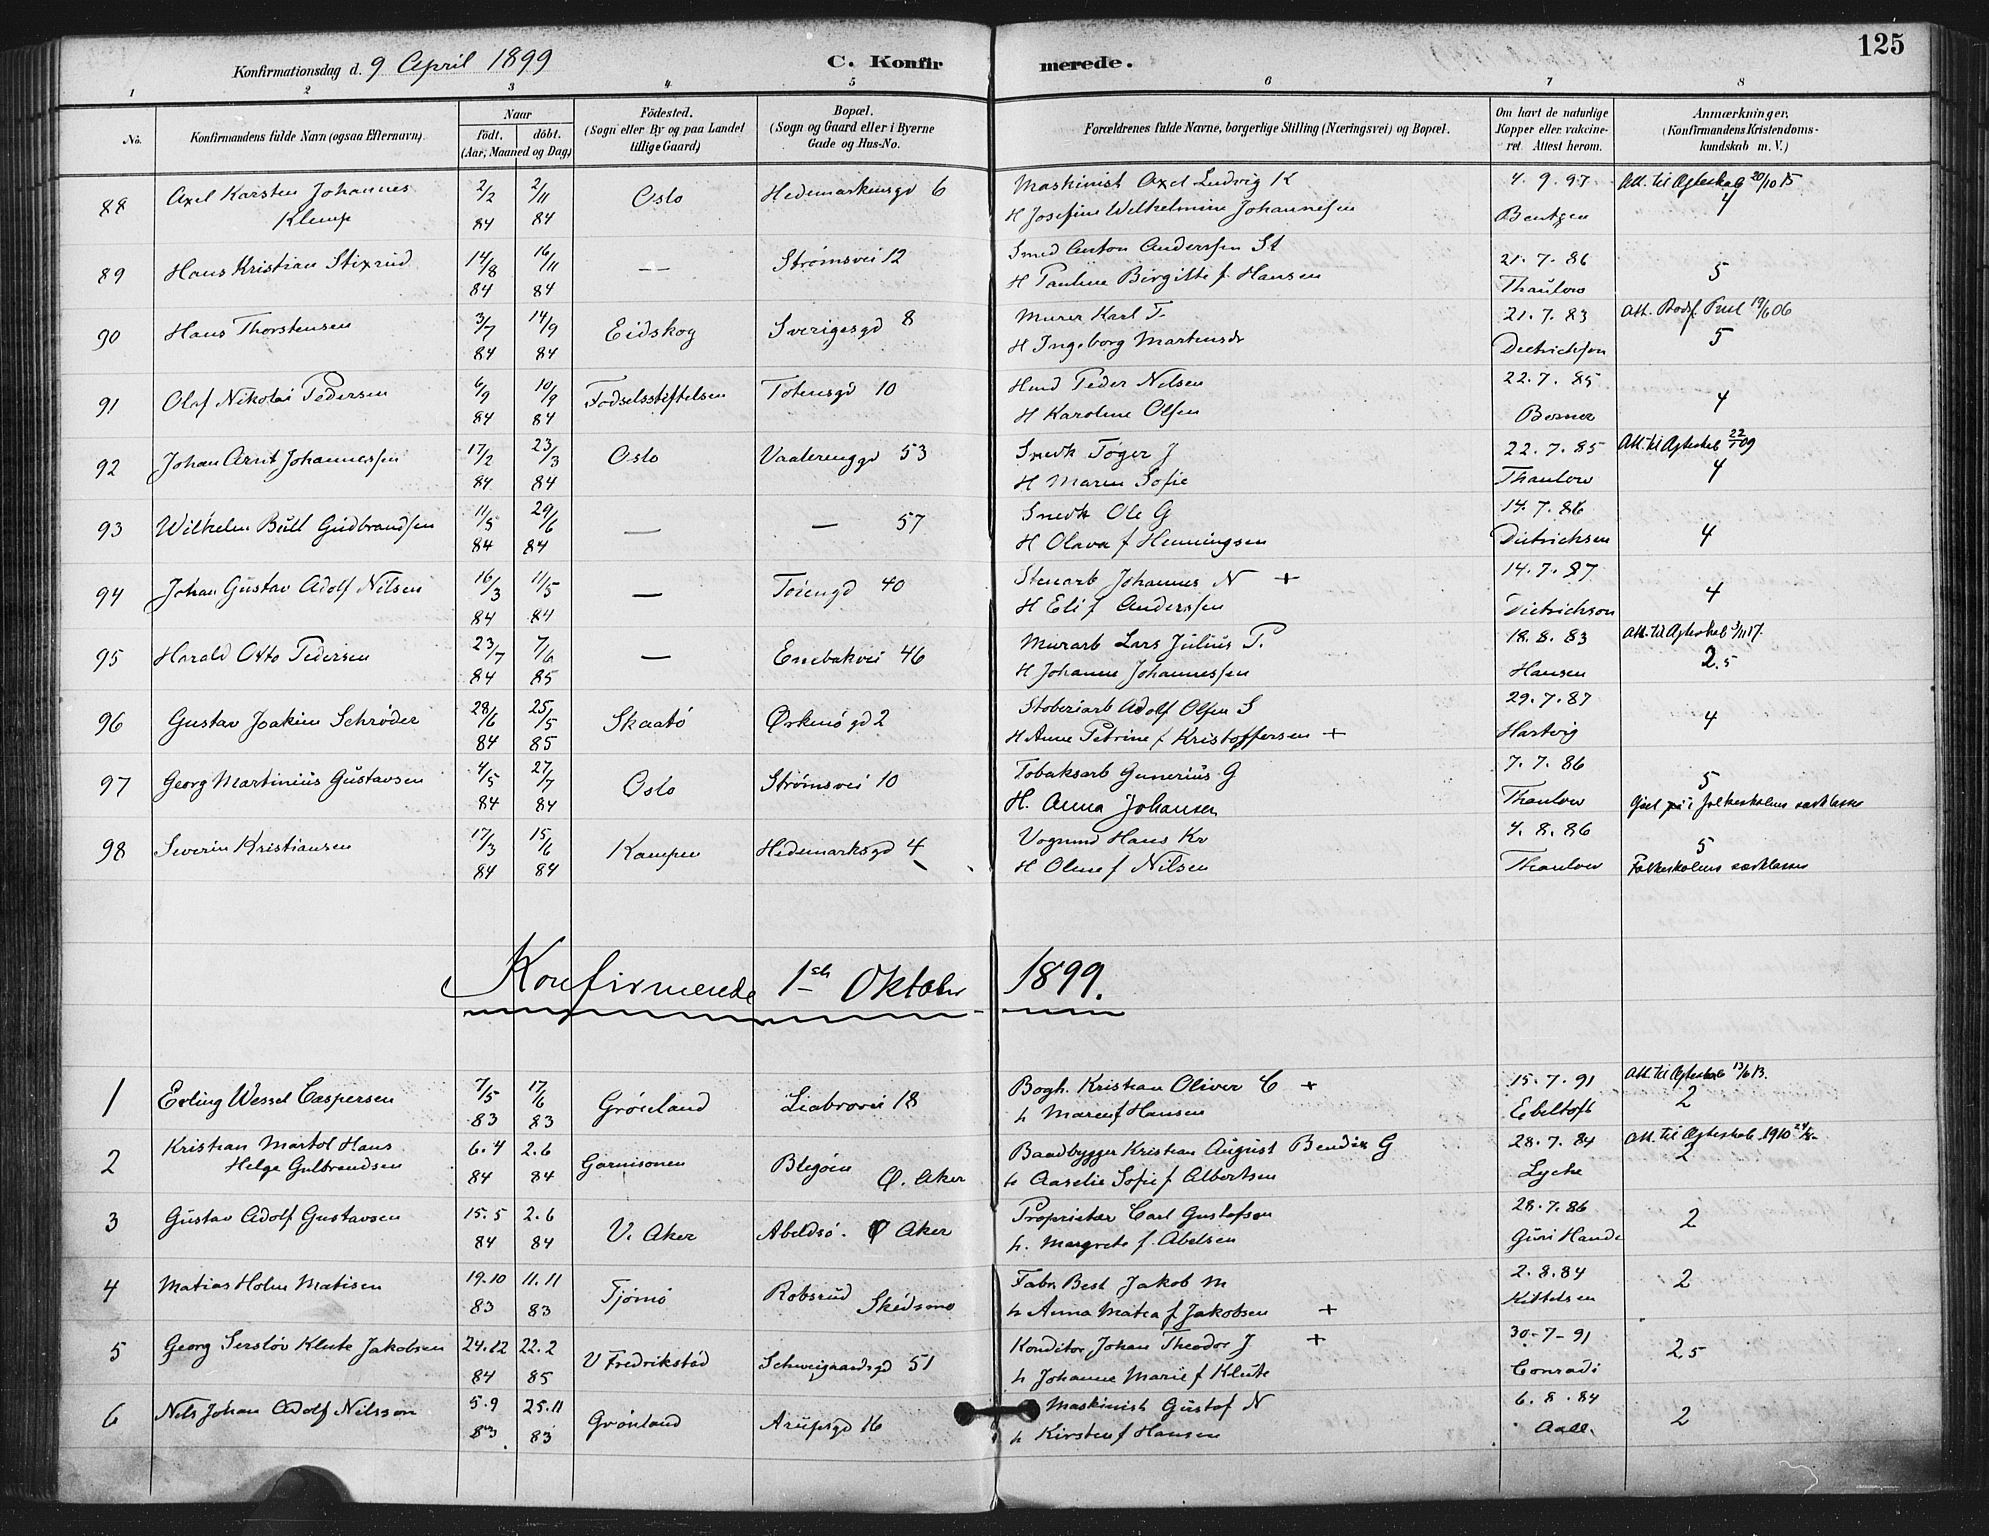 125
Konfirmationsdag d. 9 April 1899 C. Konfirmerede.
1 2 3 4 5 6 7 8
No. Konfirmandens fulde Navn (ogsaa Efternavn). Naar født. døbt. (Aar, Maaned og Dag) Fødested. (Sogn eller By og paa Landet tillige Gaard) Bopæl. (Sogn og Gaard eller i Byerne Gade og Hus-No. Forældrenes fulde Navne, borgerlige Stilling (Næringsvei) og Bopæl. Om havt de naturlige Kopper eller vakcineret. Attest herom. Anmærkninger. (Konfirmandens Kristendomskundskab m. V.)
88 Axel Karsten Johannes 2/2 2/11 Oslo Hedemarkensgd 6 Maskinist Axel Ludvig K 4. 9. 97 Att. til Ægteskab 20/10 15
Klemp 84 84 H Josefine Wilhelmine Johannesen Bentzen 4
89 Hans Kristian Stixrud 14/8 16/11 — Strømsvei 12 Smed Anton Anderssen St 21. 7. 86 5
84 84 H Pauline Birgitte f. Hansen Thaulow
90 Hans Thorstensen 3/7 14/9 Eidskog Sverigesgd 8 Murer Karl T. 21. 7. 83 Att. 19/6 06
84 84 H Ingeborg Martinsdr Dietrichson 5
91 Olaf Nikolai Pedersen 6/9 10/9 Fødselsstiftelsen Totensgd 10 Peder Nilsen 22. 7. 85 4
84 84 H Karoline Olsen
92 Johan Arnt Johannessen 17/2 23/3 Oslo Vaalerenggd 53 Snedk Tøger J 22. 7. 85 Att. til Ægteskab 22/1 09
84 84 H Maren Sofie Thaulow 4
93 Wilhelm Bull Gudbrandsen 11/5 29/6 — — 57 Snedk Ole G 14. 7. 86 4
84 84 H Olava f Henningsen Dietrichsen
94 Johan Gustav Adolf Nilsen 16/3 11/5 — Tøiengd 40 Stenarb Johannes N + 14. 7. 87 4
84 84 H Eli f Anderssen Dietrichson
95 Harald Otto Pedersen 23/7 7/6 — Enebakvei 46 Murarb Lars Julius P. 18. 8. 83 Att. til Ægteskab 3/11 17.
84 85 H Johanne Johannessen Hansen 2.5
96 Gustav Joakim Schrøder 28/6 25/5 Skaatø Ørkenøgd 2 Støberiarb Adolf Olsen S 29. 7. 87 4
84 85 H Anne Petrine f Kristoffersen + Hartvig
97 Georg Martinius Gustavsen 4/5 27/7 Oslo Strømsvei 10 Tobaksarb Gunerius G 7. 7. 86 5
84 84 H. Anna Johansen Thaulow i Folkeskolens særklasse
98 Severin Kristiansen 17/3 15/6 Kampen Hedemarksgd 4 Vognmd Hans Kr 4. 8. 86 5
84 84 H Oline f Nilsen Thaulow Folkeskolens særklasse
Konfirmerede 1ste Oktober 1899.
1 Erling Wessel Caspersen 7/5 17/6 Grønland Liabrovei 18 Bogh. Kristian Oliver C + 15. 7. 91 Att. til Ægteskab 13/6 13.
83 83 h Maren f Hansen Ebeltoft 2
2 Kristian Martol Hans 6.4 2.6 Garnisonen Blegøen Baadbygger Kristian August Bendix G 28. 7. 84 Att. til Ægteskab 1910 24/8
Helge Gulbrandsen 84 84 Ø. Aker h Aaselie Sofie f Albertsen Lyche 2
3 Gustav Adolf Gustavsen 15.5 2.6 V. Aker Abeldsø. Ø Aker Proprietær Carl Gustafson 28. 7. 86 2
84 84 h. Margrete f. Abelsen Guri Hande
4 Matias Holm Matisen 19.10 11.11 Tjømø Robsrud Fabr. Best Jakob M 2. 8. 84 2
83 83 Skedsmo h Anna Matea f. Jakobsen + Kittelsen
5 Georg Serslöv Klute Jakobsen 24.12 22.2 V Fredrikstad Schweigaardsgd 51 Konditor Johan Theodor J + 30-7-91 2,5
84 85 h Johanne Marie f Klute Conradi
6 Nils Johan Adolf Nilsson 5.9 25.11 Grønland Arupsgd 16 Maskinist Gustaf N 6. 8. 84 2
83 83 h Kirsten f Hansen Aall.